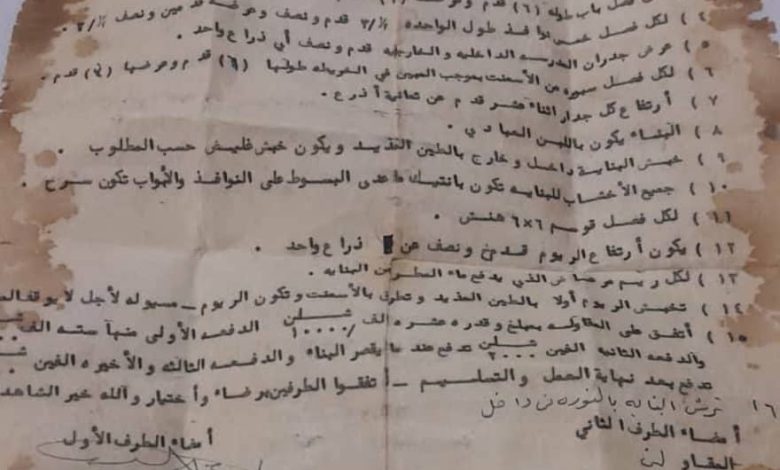 فصل باب طوله (٦) قدم و
٢ ) لكل فصل خمس نوافذ طول الواحده ٣/½ قدم ونصف وعرضه قدمين ونصف ٢/½ .
٥ ) عرض جدران المدرسه الداخليه و الخارجيه قدم ونصف أي ذراع واحد .
٦ ) لكل فصل سبوره من الأسمنت بموجب المبين في الخريطه طولها (٦) قدم وعرضها (٤) قدم .
٧ ) أرتفاع كل جدار اثناء عشر قدم عن ثمانية أذرع .
٨ ) البناء يكون باللبن العبادي .
٩ ) خبش البناية داخل و خارج بالطين الفذيد ويكون خبش فليش حسب المطلوب .
١٠ ) جميع الأخشاب للبنايه تكون بانتيك ما عدى البسوط على النوافذ والأبواب تكون سرح .
١١ ) لكل فصل قوسم ٦×٦ هنش .
١٢ ) يكون أرتفاع الريوم قدمين ونصف عن ذراع واحد .
١٣ ) لكل ريم مرضاض الذي يدفع ماء المطر من البنايه .
١٤ ) تخبش الريوم أولا بالطين الفذيد و تطرق بالأسمنت وتكون الريوم – مسبوله لأجل لا يوقف الماء
١٥ ) أتفق على المقاوله بمبلغ وقدره عشره الف /١٠٠٠٠ شلن الدفعه الأولى منها سته الف
والدفعه الثانيه الفين ٢٠٠٠ شلن تدفع عند ما يقصر البناء و الدفعه الثالثه والأخيره الفين
تدفع بعد نهاية العمل والتسليم – أتفقوا الطرفين برضاء وأختيار والله خير الشاهد
١٦ ) ترش البنايه بالنوره من داخل
أمضاء الطرف الثاني
أمضاء الطرف الأول
المقاول